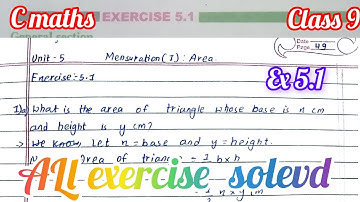 C maths EXERCISE 5.1 Class 9
General section
Date
Page 49
Unit-5 Mensuration (I) : Area
Exercise:-5.1
Ex 5.1
1)a) What is the area of triangle whose base is x cm
and height is y cm?
→ We know, Let x = base and y = height.
Area of triangle = 1/2 b×h
ALl exercise solevd